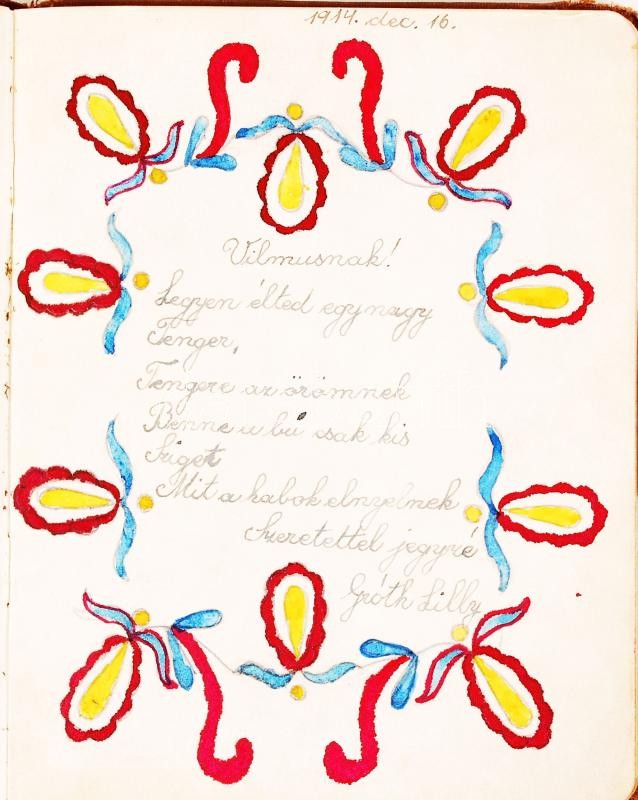 1914. dec. 16.
Vilmusnak!
Legyen élted egy nagy
Tenger,
Tengere az örömnek
Benne a bú csak kis
Sziget
Mit a habok elnyelnek
Szeretettel jegyzé
Gróth Lilly